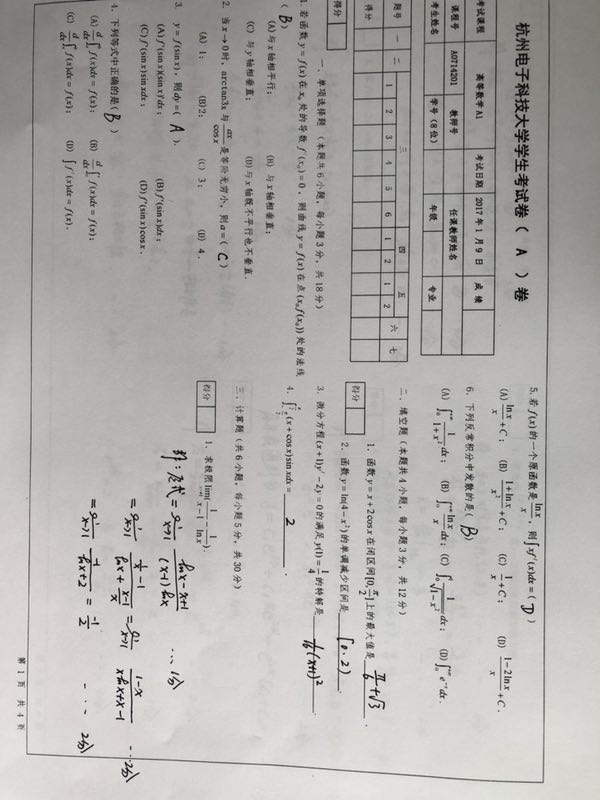 杭州电子科技大学学生考试卷（ A ）卷
考试课程 高等数学A1 考试日期 2017年1月9日 成绩
课程号 A0714201 教师号 任课教师姓名
考生姓名 学号（8位） 年级 专业
题号 一 二 三 四 五 六 七
1 2 3 4 5 6 1 2 1 2
得分
得分
一、单项选择题 （本题共6小题，每小题3分，共18分）
1.若函数 y = f(x) 在 x₀ 处的导数 f′(x₀) = 0，则曲线 y = f(x) 在点 (x₀f(x₀)) 处的法线
（ B ）
(A)与x轴相平行； (B) 与x轴相垂直；
(C) 与y轴相垂直； (D)与x轴既不平行也不垂直.
2. 当 x→0 时，arctan3x 与 ax/cos x 是等价无穷小，则 a =（ C ）
(A) 1； (B)2； (C) 3； (D) 4.
3. y = f(sin x)，则 dy =（ A ）.
(A) f′(sin x)(sin x)′dx； (B) f′(sin x)dx；
(C) f′(sin x)sin xdx； (D) f′(sin x)cos x.
4. 下列等式中正确的是( B )
5.若 f(x) 的一个原函数是 ln x/x，则 ∫xf′(x)dx =（ D ）
(A) ln x/x + C； (B) (1+ln x)/x² + C； (C) 1/x + C； (D) (1−2ln x)/x + C.
6. 下列反常积分中发散的是( B )
(A) ∫₀^{+∞} 1/(1+x²) dx； (B) ∫ ln x/x dx； (C) ∫₀¹ 1/√(1−x²) dx； (D) ∫₀^{+∞} e⁻ˣdx.
二、填空题（本题共4小题，每小题3分，共12分）
得分
1. 函数 y = x + 2cos x 在闭区间[0, π/2]上的最大值是 π/6+√3 .
2. 函数 y = ln(4−x²) 的单调减少区间是 [0.2) .
3. 微分方程 (x+1)y′−2y=0 的满足 y(1) = 1/4 的特解是 1/16(x+1)²
4. ∫_{−π/2}^{π/2} (x + cos x)sin xdx = 2 .
三、计算题（共6小题，每小题5分，共30分）
得分
1. 求极限 lim_{x→1}(1/(x−1) − 1/ln x).
解：原式 = lim_{x→1} (lnx−x+1)/((x−1)lnx) … 1分
= lim_{x→1} (1/x −1)/(lnx + (x−1)/x) = lim_{x→1} (1−x)/(xlnx+x−1) … 2分
= lim_{x→1} −1/(lnx+2) = −1/2 … 2分
第 1 页 共 4 页